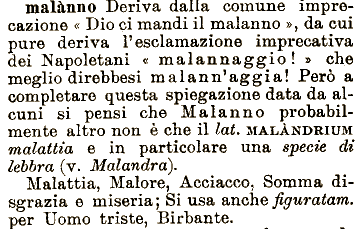 malànno Deriva dalla comune impre-
cazione « Dio ci mandi il malanno », da cui
pure deriva l'esclamazione imprecativa
dei Napoletani « malannaggio! » che
meglio direbbesi malann'aggia! Però a
completare questa spiegazione data da al-
cuni si pensi che Malanno probabil-
mente altro non è che il lat. MALÀNDRIUM
malattia e in particolare una specie di
lebbra (v. Malandra).
Malattia, Malore, Acciacco, Somma di-
sgrazia e miseria; Si usa anche figuratam.
per Uomo triste, Birbante.